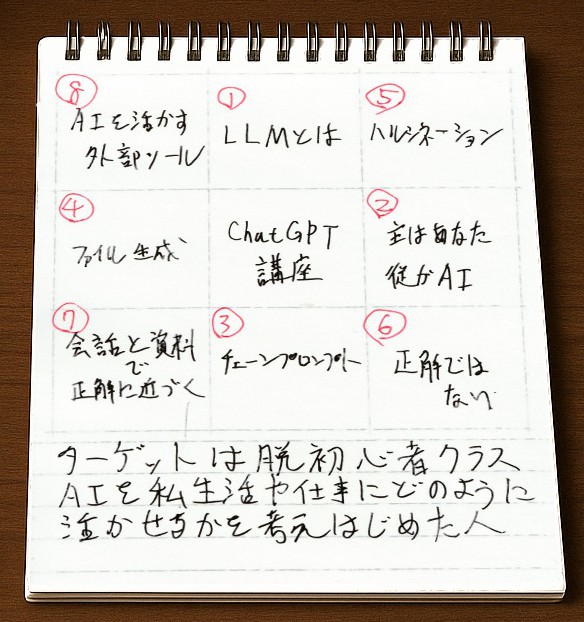 ⑧
AIを活かす
外部ツール
①
LLMとは
⑤
ハルシネーション
④
ファイル生成
ChatGPT
講座
②
主はあなた
従がAI
⑦
会話と資料
で
正解に近づく
③
チェーンプロンプト
⑥
正解では
ない
ターゲットは脱初心者クラス
AIを私生活や仕事にどのように
活かせるかを考えはじめた人